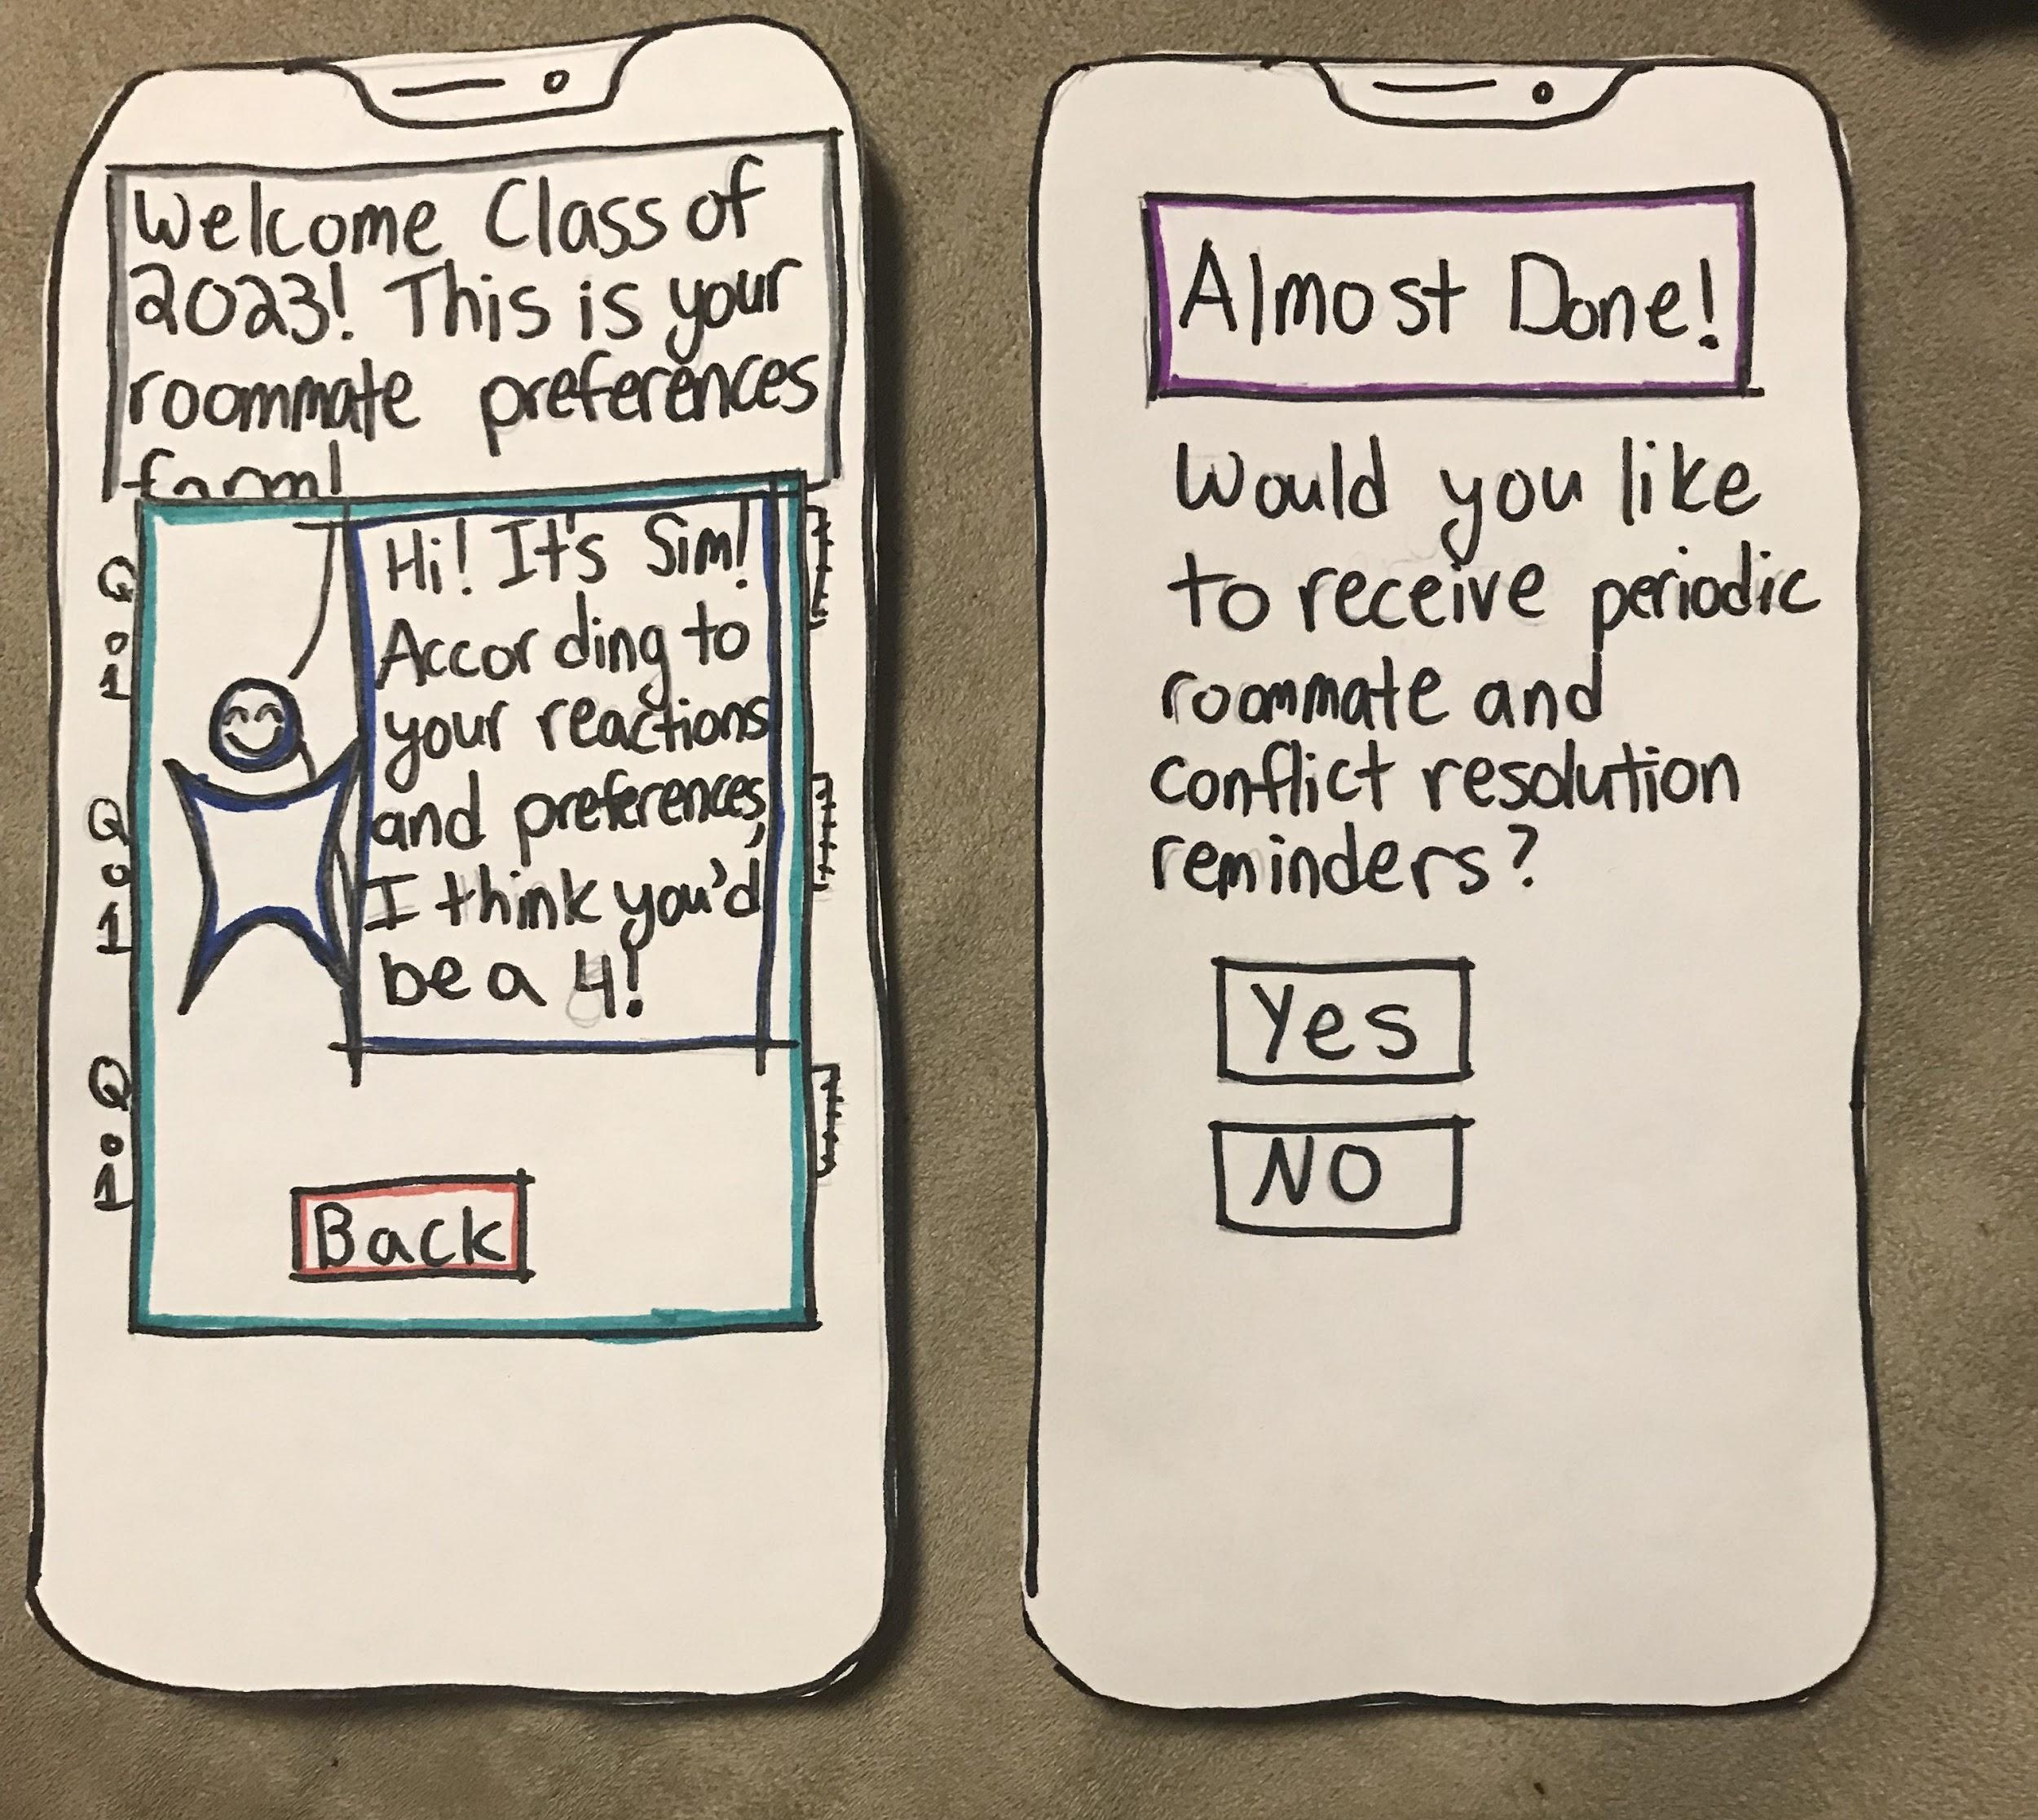 Welcome Class of
2023! This is your
roommate preferences
form!
Hi! It's Sim!
According to
your reactions
and preferences,
I think you'd
be a 4!
Back
Q
Q
Q
Almost Done!
Would you like
to receive periodic
roommate and
conflict resolution
reminders?
Yes
NO